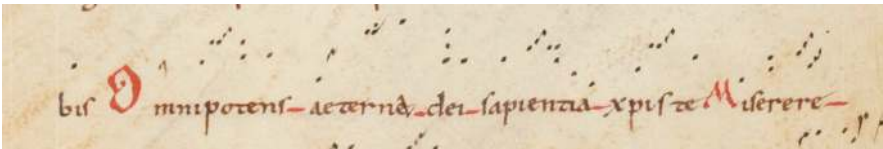 bis Omnipotens aeterne dei sapientia xpiste Miserere